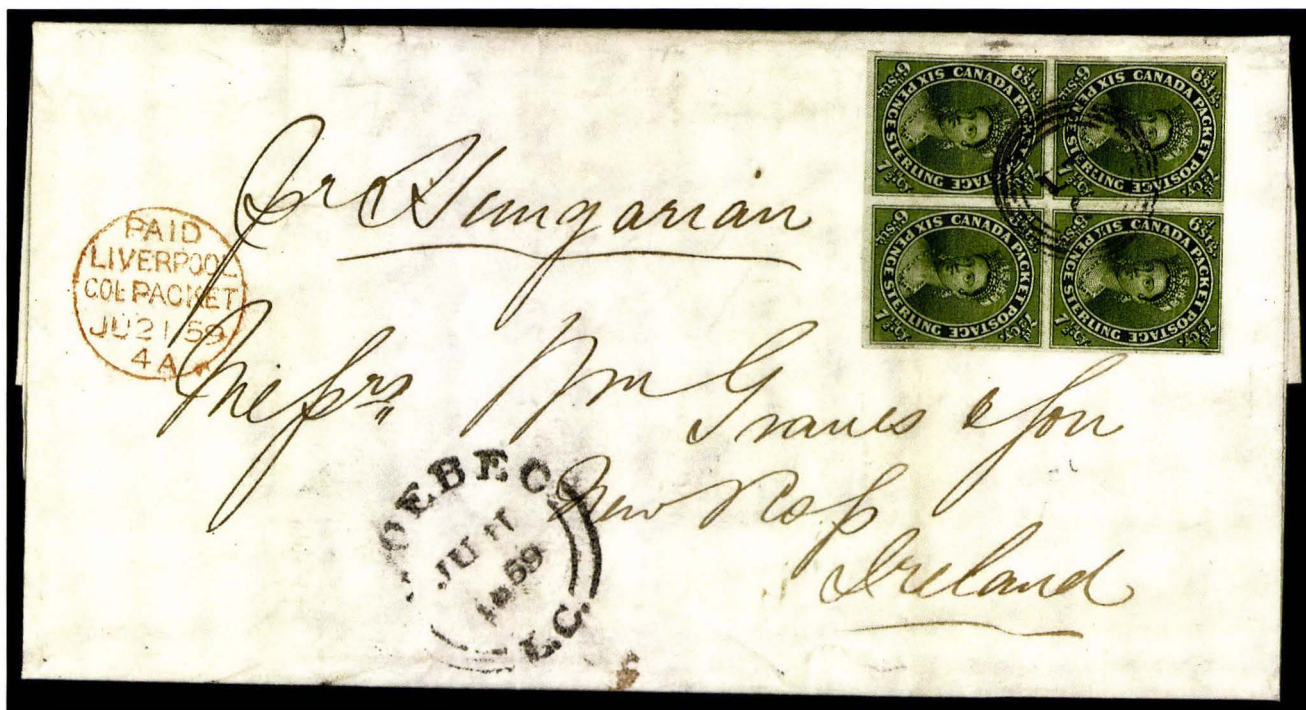 pr Hungarian
PAID
LIVERPOOL
COL PACKET
JU 21 59
4 A
Messrs Wm Graves & Son
New Ross
Ireland
QUEBEC
JU 11
1859
L.C.
CANADA PACKET POSTAGE
SIX PENCE STERLING
6d Stg.
7½d Cy.
CANADA PACKET POSTAGE
SIX PENCE STERLING
6d Stg.
7½d Cy.
CANADA PACKET POSTAGE
SIX PENCE STERLING
6d Stg.
7½d Cy.
CANADA PACKET POSTAGE
SIX PENCE STERLING
6d Stg.
7½d Cy.